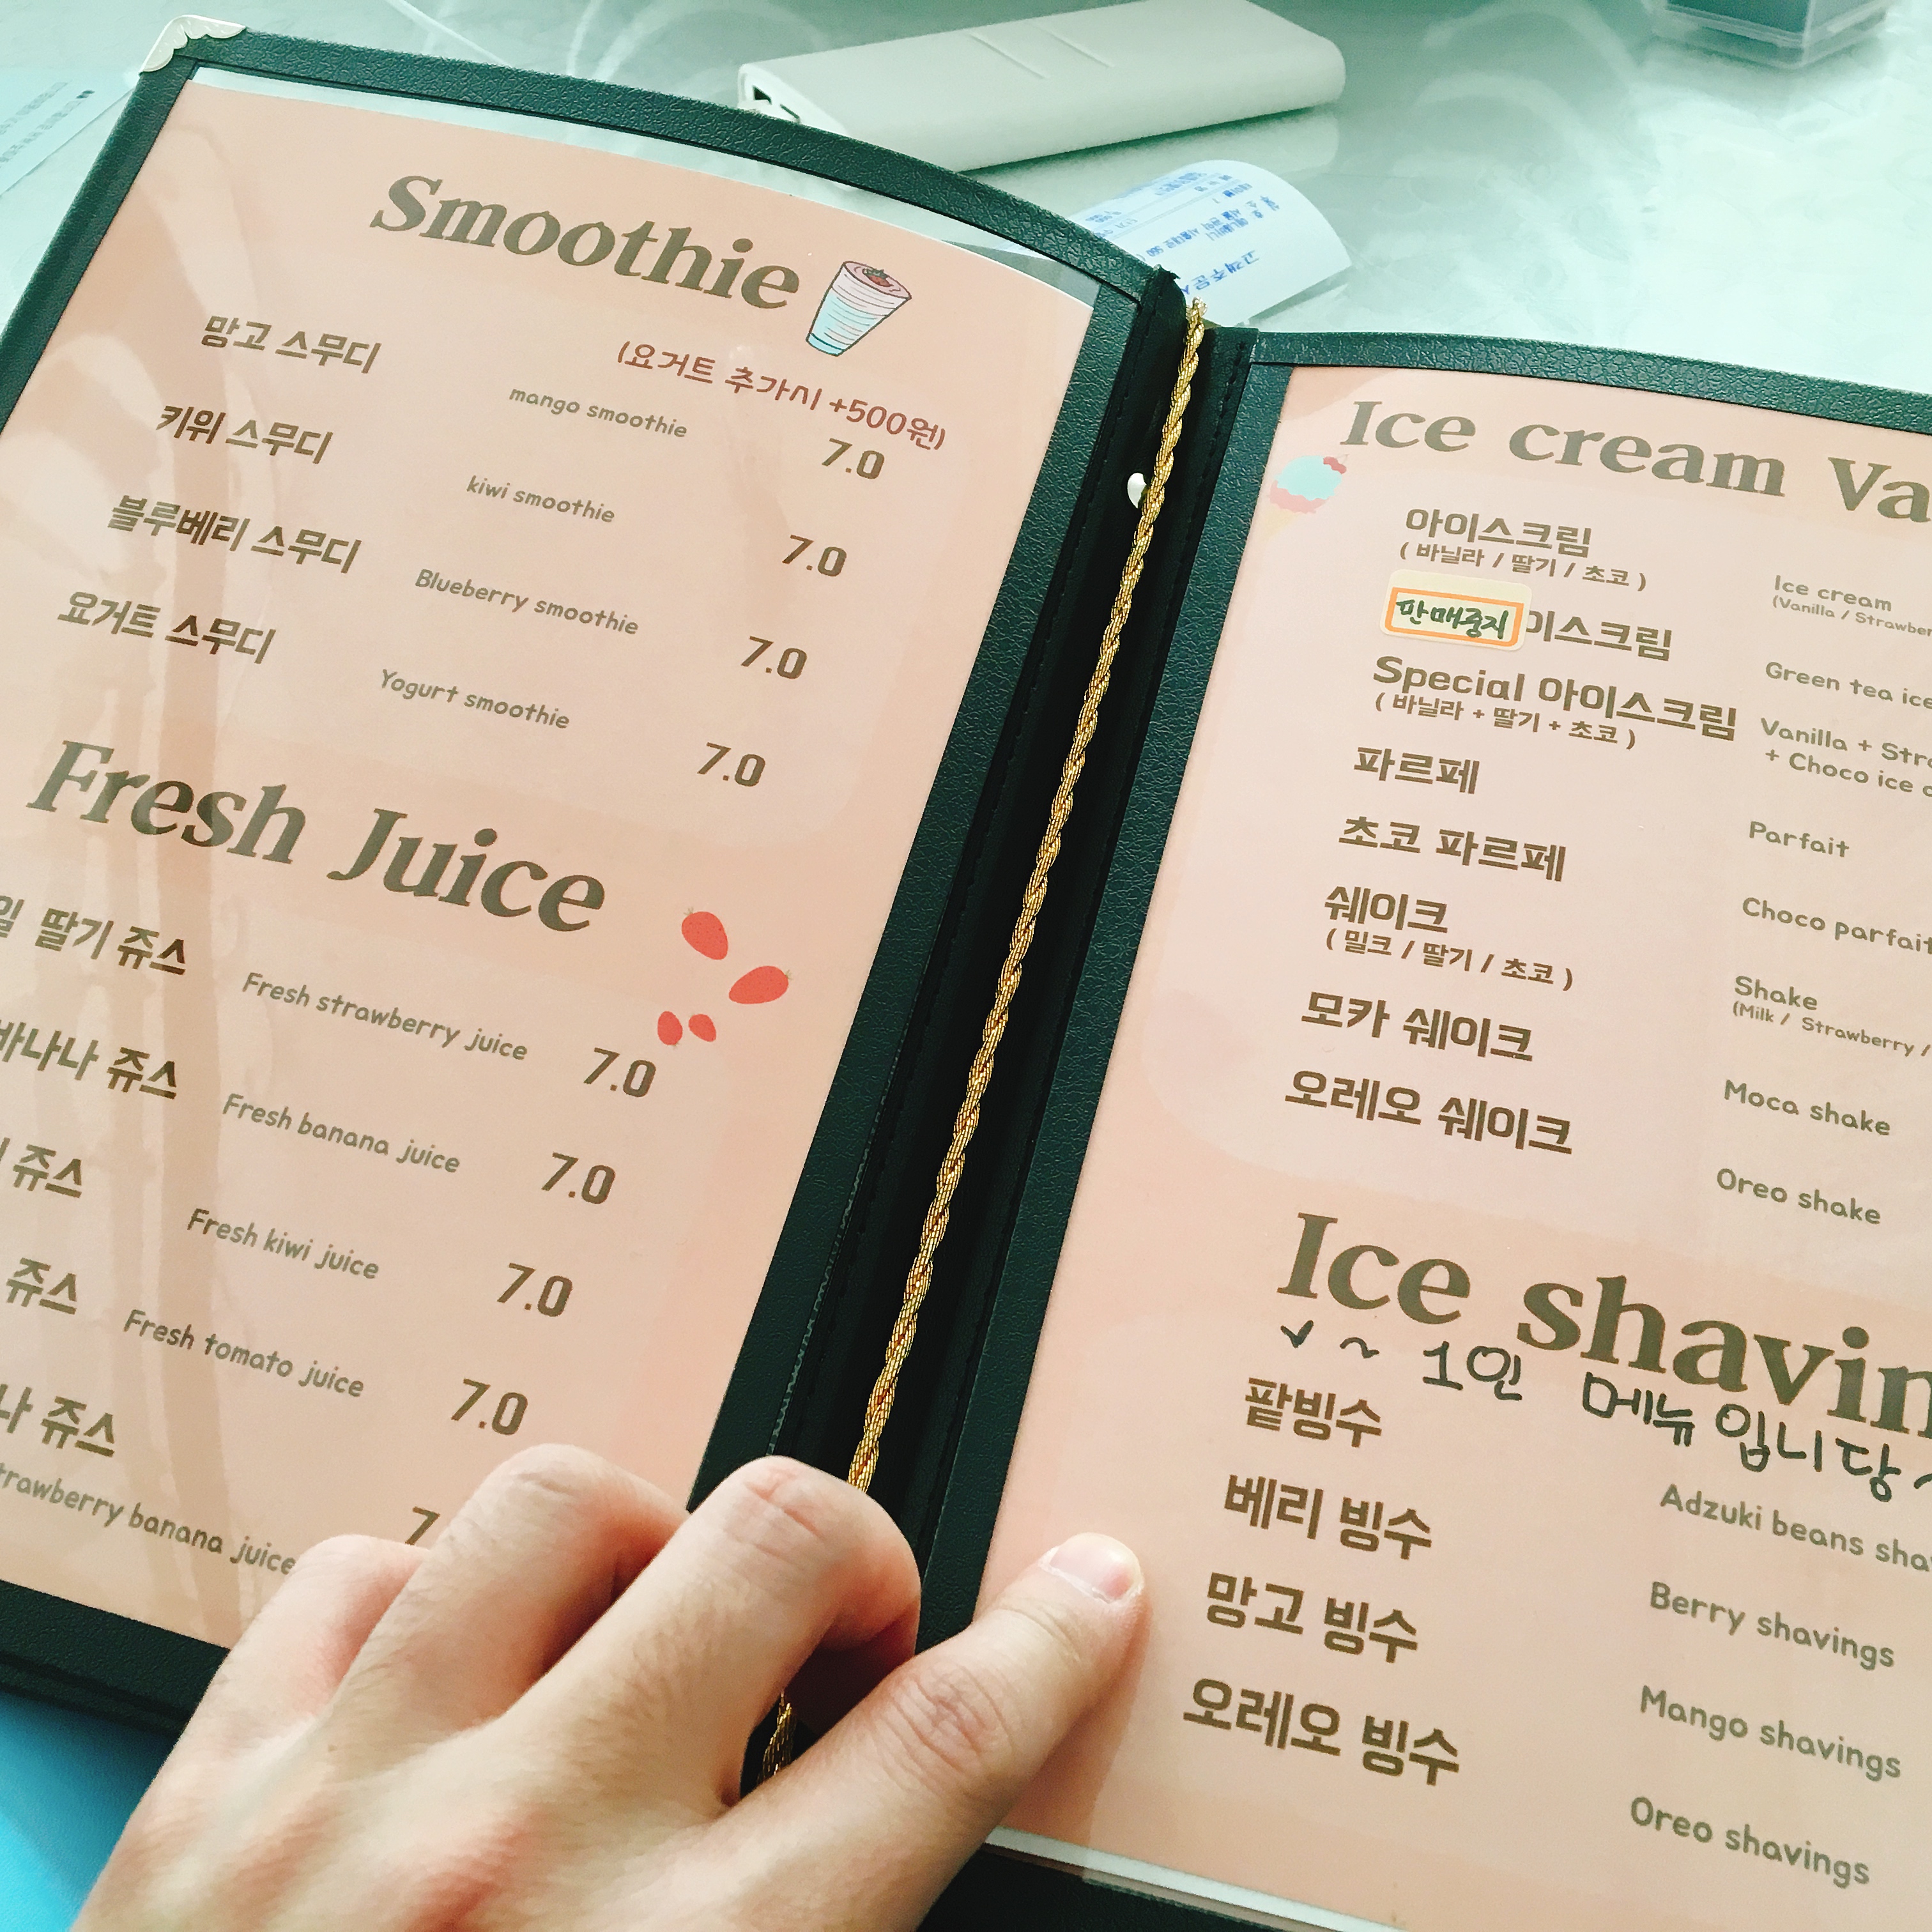 Smoothie
(요거트 추가시 +500원)
망고 스무디 mango smoothie 7.0
키위 스무디 kiwi smoothie 7.0
블루베리 스무디 Blueberry smoothie 7.0
요거트 스무디 Yogurt smoothie 7.0
Fresh Juice
딸기 쥬스 Fresh strawberry juice 7.0
바나나 쥬스 Fresh banana juice 7.0
쥬스 Fresh kiwi juice 7.0
쥬스 Fresh tomato juice 7.0
쥬스
banana juice
Ice cream
아이스크림 Ice cream
( 바닐라 / 딸기 / 초코 ) (Vanilla /
판매중지 이스크림 Green tea
Special 아이스크림 Vanilla +
( 바닐라 + 딸기 + 초코 ) + Choco ice
파르페 Parfait
초코 파르페 Choco parfait
쉐이크 Shake
( 밀크 / 딸기 / 초코 ) (Milk / Strawberry /
모카 쉐이크 Moca shake
오레오 쉐이크 Oreo shake
Ice
✓ ~ 1인 메뉴입니당~
팥빙수 Adzuki beans
베리 빙수 Berry shavings
망고 빙수 Mango shavings
오레오 빙수 Oreo shavings